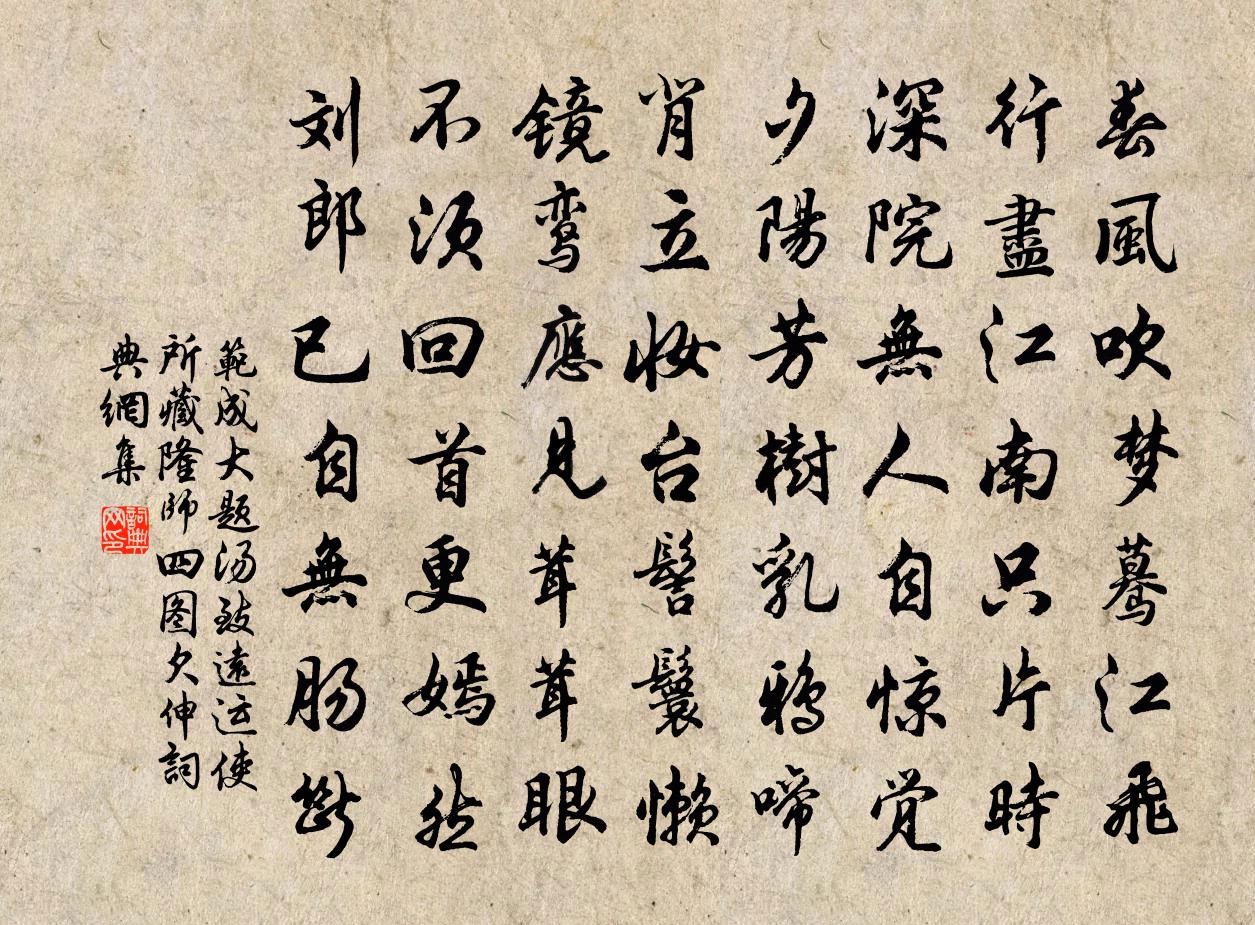 春風吹梦蓦江飛
行盡江南只片時
深院無人自惊觉
夕陽芳樹乳鴉啼
背立妆台髻鬟懒
镜鸾應見茸茸眼
不须回首更嫣然
刘郎已自無肠斷
範成大题汤致遠运使
所藏隆师四图欠伸詞
典網集
詞典网印